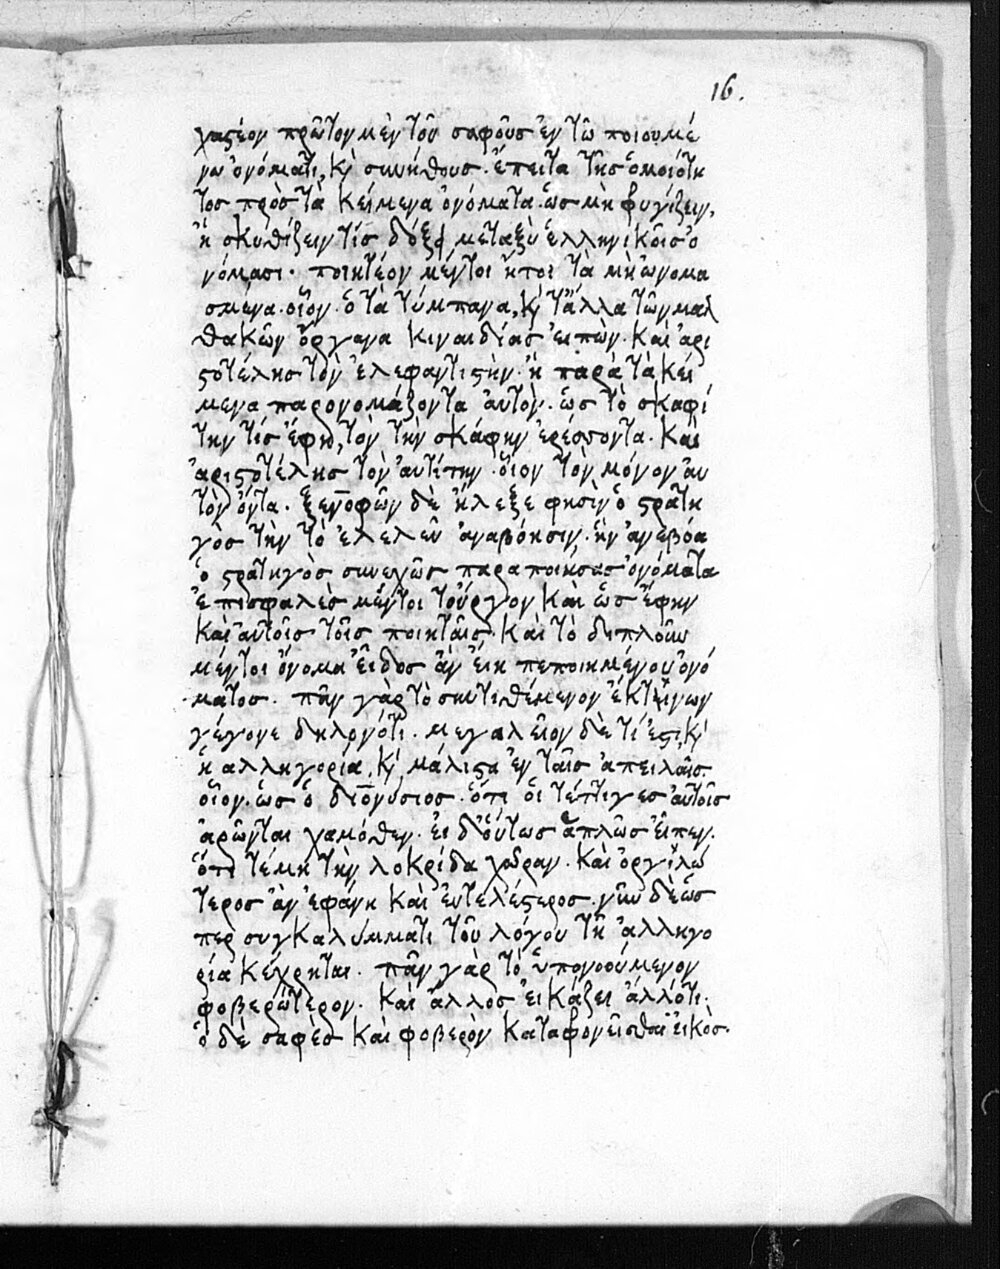 16.
χαστέον πρῶτον μὲν τοῦ σαφοῦς ἐν τῶ ποιουμέ
νω ὀνόματι, κὴ συνήθους. ἔπειτα τῆς ὁμοιότη
τος πρὸς τὰ κείμενα ὀνόματα. ὡς μὴ φρυγίζειν,
ἢ σκυθίζειν τίς δόξη μεταξὺ ἑλληνικοῖς ὀ
νόμασι. ποιητέον μέντοι ἤτοι τὰ μὴ ὠνομα
σμένα. οἷον. ὁ τὰ τύμπανα, κὴ τἄλλα τῶν μαλ
θακῶν ὄργανα κιναιδίας εἰπὼν. καὶ ἀρι
στοτέλης τὸν ἐλεφαντιστὴν. ἢ παρὰ τὰ κεί
μενα παρονομάζοντα αὐτὸν. ὡς τὸ σκαφί
την τίς ἔφη, τὸν τὴν σκάφην ἐρέσσοντα. καὶ
ἀριστοτέλης τὸν αὐτίτην. οἷον τὸν μόνον αὐ
τὸν ὄντα. ξενοφῶν δὲ ἤλεξε φησὶν ὁ στρατη
γὸς τὴν τὸ ἐλελεῦ ἀναβόησιν. ἣν ἀνεβόα
ὁ στρατηγὸς συνεχῶς παραποιήσας ὀνόματα
ἐπισφαλὲς μέντοι τοὖργον καὶ ὡς ἔφην
καὶ αὐτοῖς τοῖς ποιηταῖς. καὶ τὸ διπλοῦν
μέντοι ὄνομα εἶδος ἂν εἴη πεποιημένου ὀνό
ματος. πᾶν γὰρ τὸ συντιθέμενον ἔκ τινων
γέγονε δηλονότι. μεγαλεῖον δὲ τί ἐστι κὴ
ἡ αλληγορία, κὴ μάλιστα ἐν ταῖς ἀπειλαῖς.
οἷον. ὡς ὁ διονύσιος. ὅτι οἱ τέττιγες αὐτοῖς
ἀρῶνται χαμόθεν. εἰ δ' οὕτως ἁπλῶς εἶπεν.
ὅτι τέμη τὴν λοκρίδα χώραν. καὶ ὀργιλώ
τερος ἂν ἐφάνη καὶ εὐτελέστερος. νῦν δὲ ὥς
περ συγκαλύμματι τοῦ λόγου τῆ ἀλληγο
ρία κέχρηται. πᾶν γὰρ τὸ ὑπονοούμενον
φοβερώτερον. καὶ ἄλλος εἰκάζει ἄλλότι.
ὁ δὲ σαφὲς καὶ φοβερὸν καταφρονεῖσθαι εἰκὸς.